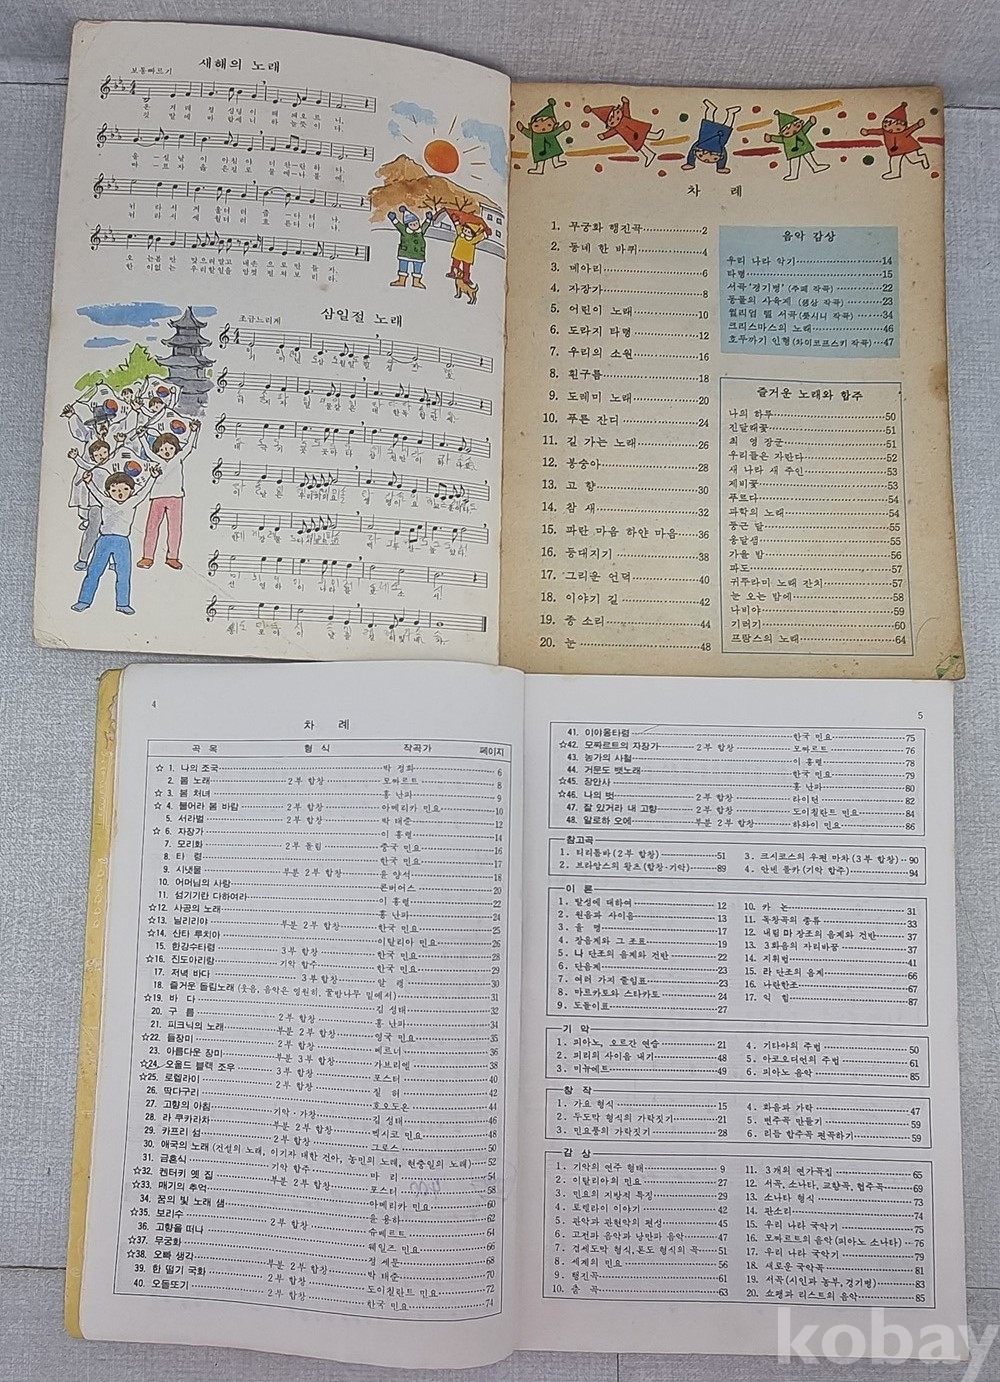 새해의 노래
보통빠르기
삼일절 노래
조금느리게
차 례
1. 무궁화 행진곡 2
2. 동네 한 바퀴 4
3. 메아리 6
4. 자장가 8
5. 어린이 노래 10
6. 도라지 타령 12
7. 우리의 소원 16
8. 흰구름 18
9. 도레미 노래 20
10. 푸른 잔디 24
11. 길 가는 노래 26
12. 봉숭아 28
13. 고 향 30
14. 참 새 32
15. 파란 마음 하얀 마음 36
16. 등대지기 38
17. 그리운 언덕 40
18. 이야기 길 42
19. 종 소리 44
20. 눈 48
음악 감상
우리 나라 악기 14
타령 15
서곡‘경기병’(주페 작곡) 22
동물의 사육제 (생상 작곡) 23
윌리엄 텔 서곡(롯시니 작곡) 34
크리스마스의 노래 46
호두까기 인형(차이코프스키 작곡) 47
즐거운 노래와 합주
나의 하루 50
진달래꽃 51
최 영 장군 51
우리들은 자란다 52
새 나라 새 주인 53
제비꽃 53
푸르다 54
과학의 노래 54
둥근 달 55
옹달샘 55
가을 밤 56
파도 57
귀뚜라미 노래 잔치 57
눈 오는 밤에 58
나비야 59
기러기 60
프랑스의 노래 64
4
차 례
곡 목 형 식 작곡가 페이지
☆ 1. 나의 조국 박 정희 6
2. 봄 노래 2부 합창 모짜르트 8
☆ 3. 봄 처녀 홍 난파 9
☆ 4. 불어라 봄 바람 2부 합창 아메리카 민요 10
5. 서라벌 2부 합창 박 태준 12
☆ 6. 자장가 이 흥렬 14
7. 모리화 2부 돌림 중국 민요 16
8. 타 령 한국 민요 17
9. 시냇물 부분 2부 합창 윤 양석 18
10. 어머님의 사랑 콘버어스 20
11. 섬기기란 다하여라 이 흥렬 22
☆12. 사공의 노래 홍 난파 24
☆13. 닐리리야 부분 2부 합창 한국 민요 25
☆14. 산타 루치아 이탈리아 민요 26
15. 한강수타령 3부 합창 한국 민요 28
☆16. 진도아리랑 기악 합주 한국 민요 29
17. 저녁 바다 3부 합창 알 렐 30
18. 즐거운 돌림노래 (웃음, 음악은 영원히, 꿀밤나무 밑에서) 31
☆19. 바 다 김 성태 32
20. 구 름 2부 합창 홍 난파 34
21. 피크닉의 노래 부분 2부 합창 영국 민요 35
☆22. 들장미 2부 합창 베르너 36
23. 아름다운 장미 부분 3부 합창 가브리엘 38
☆24. 오울드 블랙 조우 3부 합창 포스터 40
☆25. 로렐라이 2부 합창 질 허 42
26. 딱다구리 호오도온 44
27. 고향의 아침 기악·가창 김 성태 46
28. 라 쿠카라차 부분 2부 합창 멕시코 민요 48
29. 카프리 섬 2부 합창 그로스 50
30. 애국의 노래 (건설의 노래, 이기자 대한 건아, 농민의 노래, 현충일의 노래) 52
31. 금혼식 기악 합주 마 리 54
☆32. 켄터키 옛 집 부분 2부 합창 포스터 58
☆33. 매기의 추억 아메리카 민요 60
34. 꿈의 빛 노래 샘 윤 용하 62
☆35. 보리수 슈베르트 64
36. 고향을 떠나 2부 합창 웨일즈 민요 66
☆37. 무궁화 정 세문 68
☆38. 오빠 생각 부분 2부 합창 박 태준 70
39. 한 떨기 국화 2부 합창 도이칠란트 민요 72
40. 오돌또기 한국 민요 74
5
41. 이야옹타령 한국 민요 75
☆42. 모짜르트의 자장가 2부 합창 모짜르트 76
43. 농가의 사철 이 흥렬 78
44. 거문도 뱃노래 한국 민요 79
☆45. 장안사 홍 난파 80
☆46. 나의 벗 2부 합창 라이턴 82
47. 잘 있거라 내 고향 2부 합창 도이칠란트 민요 84
48. 알로하 오에 부분 2부 합창 하와이 민요 86
참고곡
1. 터리톰바 (2부 합창) 51
2. 브라암스의 왈츠 (합창·기악) 89
3. 크시코스의 우편 마차 (3부 합창) 90
4. 안넨 폴카 (기악 합주) 94
이 론
1. 발성에 대하여 12
2. 원음과 사이음 13
3. 율 명 17
4. 장음계와 그 조표 19
5. 나 단조의 음계와 건반 22
6. 단음계 23
7. 여러 가지 줄임표 23
8. 마르카토와 스타카토 24
9. 도돌이표 27
10. 카 논 31
11. 독창곡의 종류 33
12. 내림 마 장조의 음계와 건반 37
13. 3화음의 자리바꿈 37
14. 지휘법 41
15. 라 단조의 음계 66
16. 나란한조 67
17. 익 힘 87
기 악
1. 피아노, 오르간 연습 21
2. 피리의 사이음 내기 48
3. 미뉴에트 49
4. 기타아의 주법 50
5. 아코오디언의 주법 61
6. 피아노 음악 85
창 작
1. 가요 형식 15
2. 두도막 형식의 가락짓기 21
3. 민요풍의 가락짓기 28
4. 화음과 가락 47
5. 변주곡 만들기 59
6. 리듬 합주곡 편곡하기 59
감 상
1. 기악의 연주 형태 9
2. 이탈리아의 민요 27
3. 민요의 지방적 특징 29
4. 로렐라이 이야기 42
5. 관악과 관현악의 편성 45
6. 고전파 음악과 낭만파 음악 47
7. 겹세도막 형식, 론도 형식의 곡 51
8. 세계의 민요 56
9. 행진곡 61
10. 춤 곡 63
11. 3개의 연가곡집 65
12. 서곡, 소나타, 교향곡, 협주곡 69
13. 소나타 형식 73
14. 판소리 74
15. 우리 나라 국악기 75
16. 모짜르트의 음악(피아노 소나타) 76
17. 우리 나라 국악 79
18. 새로운 국악곡 81
19. 서곡(시인과 농부, 경기병) 83
20. 쇼팽과 리스트의 음악 85
kobay